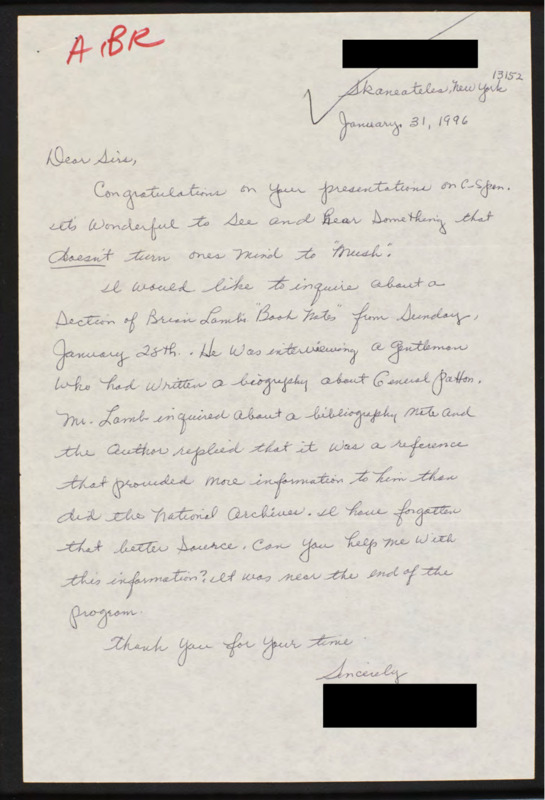 A, BR
13152
Skaneateles, New York
January 31, 1996
Dear Sirs,
Congratulations on your presentations on C-Span.
It's wonderful to see and hear something that
doesn't turn ones mind to "mush".
I would like to inquire about a
section of Brian Lamb's "Book Notes" from Sunday,
January 28th. He was interviewing a gentleman
who had written a biography about General Patton.
Mr. Lamb inquired about a bibliography note and
the author replied that it was a reference
that provided more information to him than
did the National Archives. I have forgotten
that better source. Can you help me with
this information? It was near the end of the
program.
Thank you for your time.
Sincerely